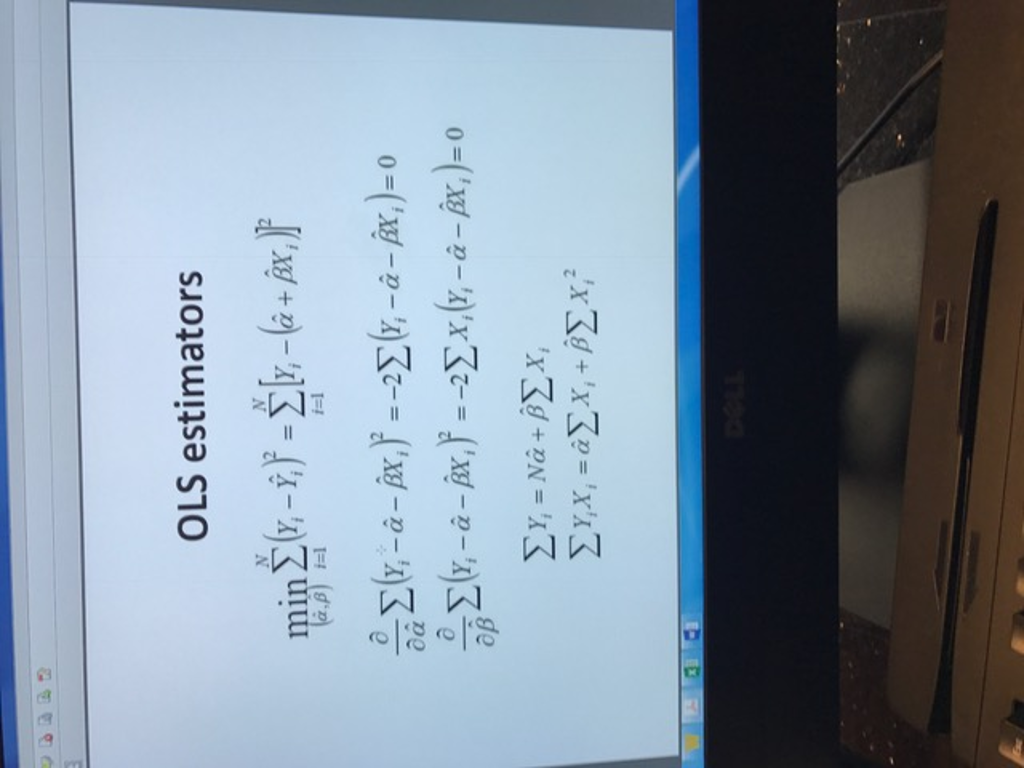 OLS estimators
min_{(α̂,β̂)} ∑_{i=1}^{N} (Y_i − Ŷ_i)² = ∑_{i=1}^{N} [Y_i − (α̂ + β̂X_i)]²
∂/∂α̂ ∑(Y_i − α̂ − β̂X_i)² = −2∑(Y_i − α̂ − β̂X_i) = 0
∂/∂β̂ ∑(Y_i − α̂ − β̂X_i)² = −2∑X_i(Y_i − α̂ − β̂X_i) = 0
∑Y_i = Nα̂ + β̂∑X_i
∑Y_iX_i = α̂∑X_i + β̂∑X_i²
DELL